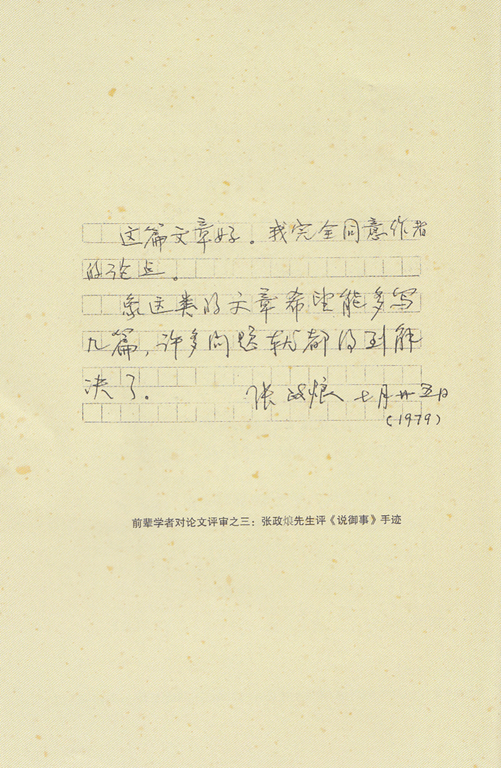 这篇文章好。我完全同意作者
的论点。
象这类的文章希望能多写
几篇，许多问题就都得到解
决了。
张政烺 七月廿五日
(1979)
前辈学者对论文评审之三：张政烺先生评《说御事》手迹